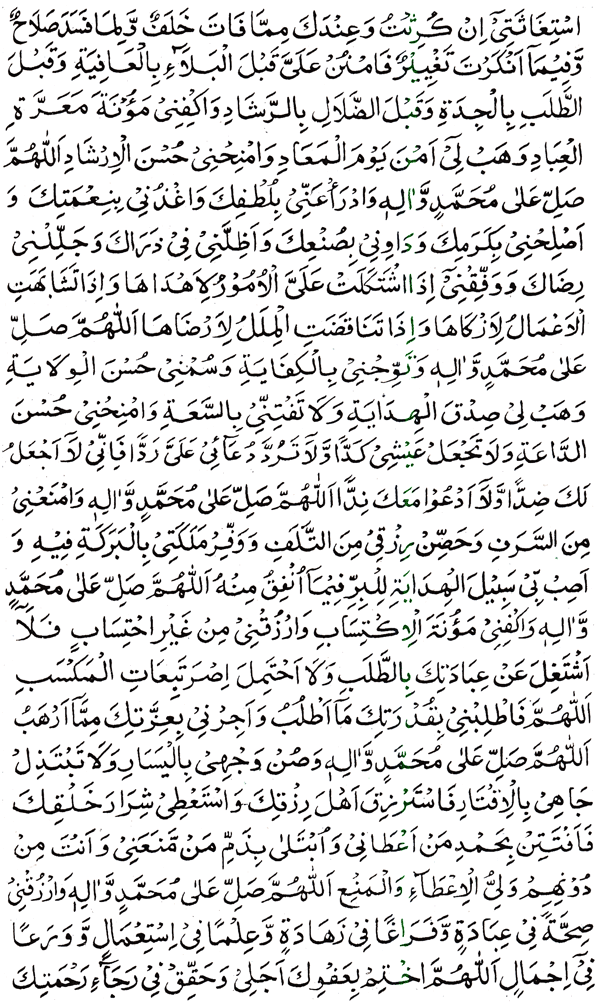 اسْتِغَاثَتِیْٓ اِنْ كُرِثْتُ وَعِنْدَكَ مِمَّا فَاتَ خَلَفٌ وَّلِمَا فَسَدَ صَلَاحٌ
وَّفِیْمَآ اَنْكَرْتَ تَغْیِیْرٌ فَامْنُنْ عَلَیَّ قَبْلَ الْبَلَآءِ بِالْعَافِیَةِ وَقَبْلَ
الطَّلَبِ بِالْجِدَةِ وَقَبْلَ الضَّلَالِ بِالرَّشَادِ وَاكْفِنِیْ مَؤُنَةَ مَعَرَّةِ
الْعِبَادِ وَهَبْ لِیْٓ اَمْنَ یَوْمَ الْمَعَادِ وَامْنِحْنِیْ حُسْنَ الْاِرْشَادِ اَللّٰهُمَّ
صَلِّ عَلٰی مُحَمَّدٍ وَّاٰلِهٖ وَادْرَأْ عَنِّیْ بِلُطْفِكَ وَاغْذُنِیْ بِنِعْمَتِكَ وَ
اَصْلِحْنِیْ بِكَرَمِكَ وَدَاوِنِیْ بِصُنْعِكَ وَاَظِلَّنِیْ فِیْ ذَرَاكَ وَجَلِّلْنِیْ
رِضَاكَ وَوَفِّقْنِیْٓ اِذَا اشْتَكَلَتْ عَلَیَّ الْاُمُوْرُ لِاَهْدَاهَا وَاِذَا تَشَابَهَتِ
الْاَعْمَالُ لِاَزْكَاهَا وَاِذَا تَنَاقَضَتِ الْمِلَلُ لِاَرْضَاهَا اَللّٰهُمَّ صَلِّ
عَلٰی مُحَمَّدٍ وَّاٰلِهٖ وَتَوِّجْنِیْ بِالْكِفَایَةِ وَسُمْنِیْ حُسْنَ الْوِلَایَةِ
وَهَبْ لِیْ صِدْقَ الْهِدَایَةِ وَلَا تَفْتِنِّیْ بِالسَّعَةِ وَامْنِحْنِیْ حُسْنَ
الدَّاعَةِ وَلَا تَجْعَلْ عَیْشِیْ كَدًّا وَّلَا تَرُدَّ دُعَآئِیْ عَلَیَّ رَدًّا فَاِنِّیْ لَآ اَجْعَلُ
لَكَ ضِدًّا وَّلَآ اَدْعُوْا مَعَكَ نِدًّا اَللّٰهُمَّ صَلِّ عَلٰی مُحَمَّدٍ وَّاٰلِهٖ وَامْنَعْنِیْ
مِنَ السَّرَفِ وَحَصِّنْ رِزْقِیْ مِنَ التَّلَفِ وَوَفِّرْ مَلَكَتِیْ بِالْبَرَكَةِ فِیْهِ وَ
اَصِبْ بِّیْ سَبِیْلَ الْهِدَایَةِ لِلْبِرِّ فِیْمَآ اُنْفِقُ مِنْهُ اَللّٰهُمَّ صَلِّ عَلٰی مُحَمَّدٍ
وَّاٰلِهٖ وَاكْفِنِیْ مَؤُنَةَ الْاِكْتِسَابِ وَارْزُقْنِیْ مِنْ غَیْرِ احْتِسَابٍ فَلَآ
اَشْتَغِلَ عَنْ عِبَادَتِكَ بِالطَّلَبِ وَلَا اَحْتَمِلَ اِصْرَ تَبِعَاتِ الْمَكْسَبِ
اَللّٰهُمَّ فَاطْلِبْنِیْ بِقُدْرَتِكَ مَآ اَطْلُبُ وَاَجِرْنِیْ بِعِزَّتِكَ مِمَّآ اَرْهَبُ
اَللّٰهُمَّ صَلِّ عَلٰی مُحَمَّدٍ وَّاٰلِهٖ وَصُنْ وَجْهِیْ بِالْیَسَارِ وَلَا تَبْتَذِلْ
جَاهِیْ بِالْاِقْتَارِ فَاَسْتَرْزِقَ اَهْلَ رِزْقِكَ وَاسْتَعْطِیَ شِرَارَ خَلْقِكَ
فَاَفْتَتِنَ بِحَمْدِ مَنْ اَعْطَانِیْ وَاُبْتَلٰی بِذَمِّ مَنْ مَّنَعَنِیْ وَاَنْتَ مِنْ
دُوْنِهِمْ وَلِیُّ الْاِعْطَآءِ وَالْمَنْعِ اَللّٰهُمَّ صَلِّ عَلٰی مُحَمَّدٍ وَّاٰلِهٖ وَارْزُقْنِیْ
صِحَّةً فِیْ عِبَادَةٍ وَّفَرَاغًا فِیْ زَهَادَةٍ وَّعِلْمًا فِی اسْتِعْمَالٍ وَّوَرَعًا
فِیْٓ اِجْمَالٍ اَللّٰهُمَّ اخْتِمْ بِعَفْوِكَ اَجَلِیْ وَحَقِّقْ فِیْ رَجَآءِ رَحْمَتِكَ